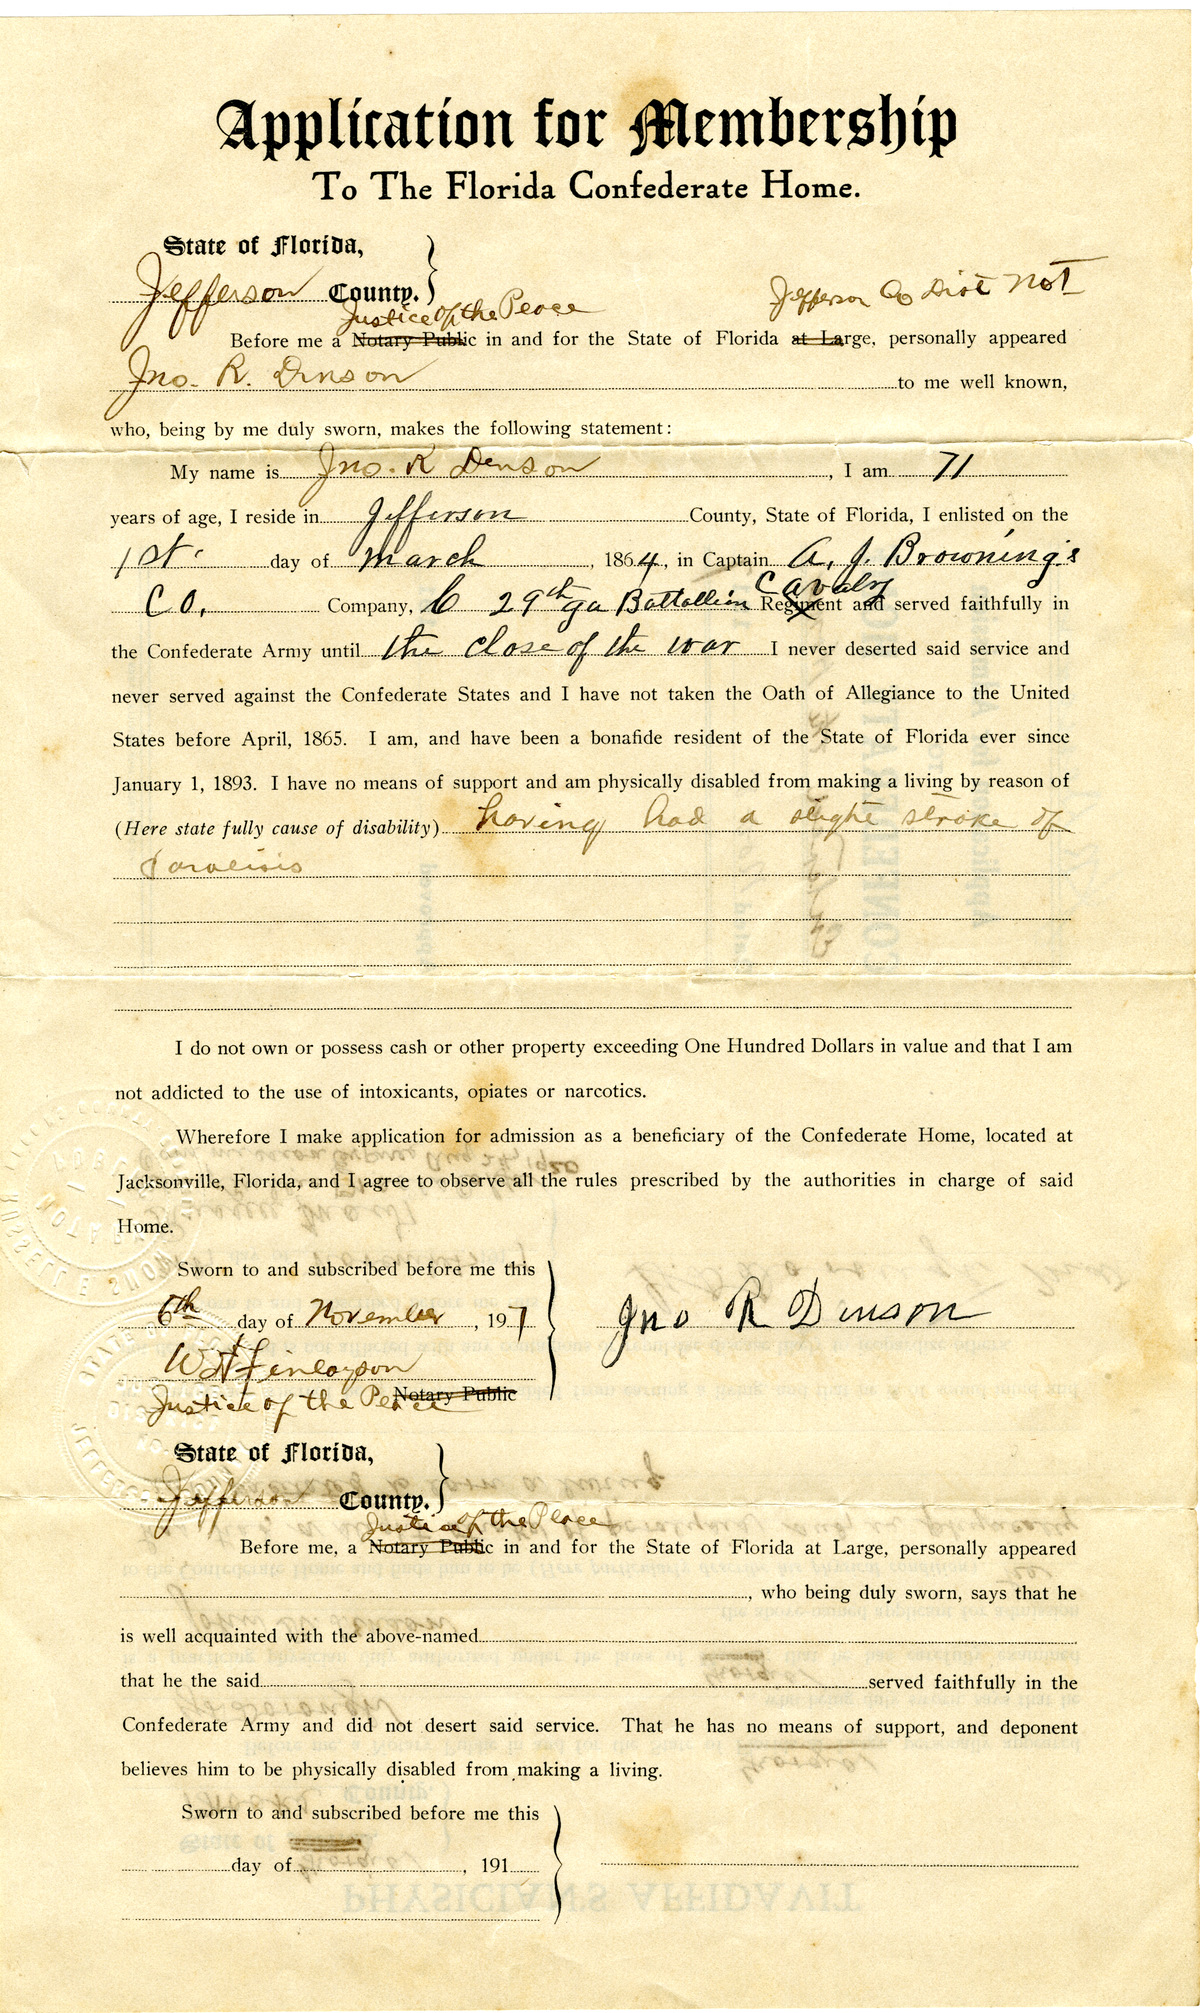 Application for Membership
To The Florida Confederate Home.
State of Florida,
Jefferson County.
Justice of the Peace Jefferson Co Dist No 1
Before me a Notary Public in and for the State of Florida at Large, personally appeared
Jno. R. Dinson to me well known,
who, being by me duly sworn, makes the following statement:
My name is Jno. R Denson, I am 71
years of age, I reside in Jefferson County, State of Florida, I enlisted on the
1st. day of March, 1864, in Captain A. J. Browning's
Co. Company, C 29th Ga Battallion Cavalry Regiment and served faithfully in
the Confederate Army until the close of the war I never deserted said service and
never served against the Confederate States and I have not taken the Oath of Allegiance to the United
States before April, 1865. I am, and have been a bonafide resident of the State of Florida ever since
January 1, 1893. I have no means of support and am physically disabled from making a living by reason of
(Here state fully cause of disability) having had a slight stroke of
Paralisis
I do not own or possess cash or other property exceeding One Hundred Dollars in value and that I am
not addicted to the use of intoxicants, opiates or narcotics.
Wherefore I make application for admission as a beneficiary of the Confederate Home, located at
Jacksonville, Florida, and I agree to observe all the rules prescribed by the authorities in charge of said
Home.
Sworn to and subscribed before me this
6th day of November, 1917 Jno R Dinson
W H Finlayson
Justice of the Peace Notary Public
State of Florida,
Jefferson County.
Justice of the Peace
Before me, a Notary Public in and for the State of Florida at Large, personally appeared
, who being duly sworn, says that he
is well acquainted with the above-named
that he the said served faithfully in the
Confederate Army and did not desert said service. That he has no means of support, and deponent
believes him to be physically disabled from making a living.
Sworn to and subscribed before me this
day of , 191